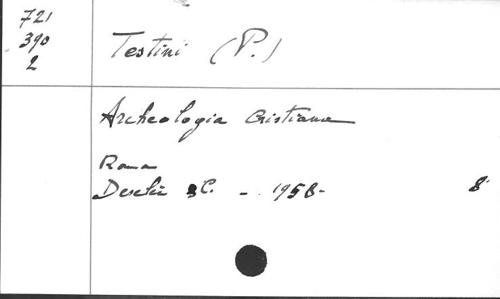 721
390
2
Testini (P.)
Archeologia Cristiana
Roma
Desclée C. - 1958-
8°